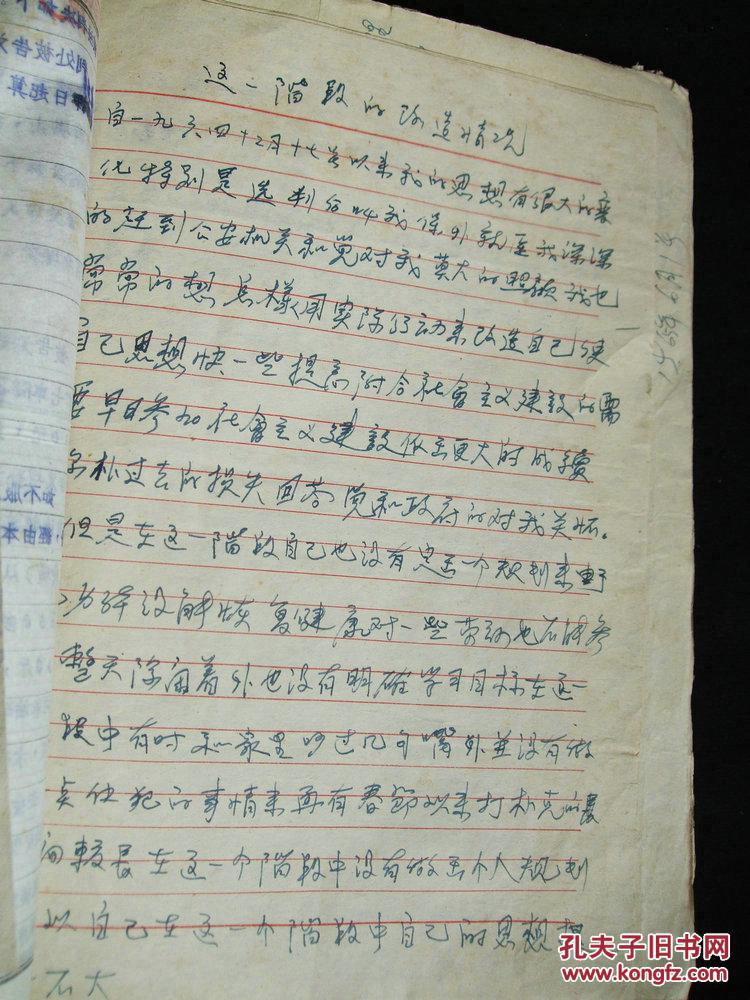 这一阶段的改造情况
自一九六四十二月十七号以来我的思想有很大的变
化特别是选判后叫我保外就医我深深
的赶到公安机关和党对我莫大的照顾我也
常常的想怎样用实际行动来改造自己使
自己思想快一些提高附合社会主义建設的需
要早日参加社会主义建設做出更大的成績
补过去的损失回答党和政府的对我关怀。
但是在这一階段自己也没有定出一个规划来由于
没有恢复健康对一些劳动也不能参
整天除闲着外也没有明确学习目标在这一
段中有时和家里吵过几句嘴外並没有做
的事情来再有春節以来打扑克的
间較長在这一个階段中没有做出个人规划
以自己在这一个階段中自己的思想提
不大
1965年6月1号
判处被告
日起算
如不服
經由本
孔夫子旧书网
kongfz.com